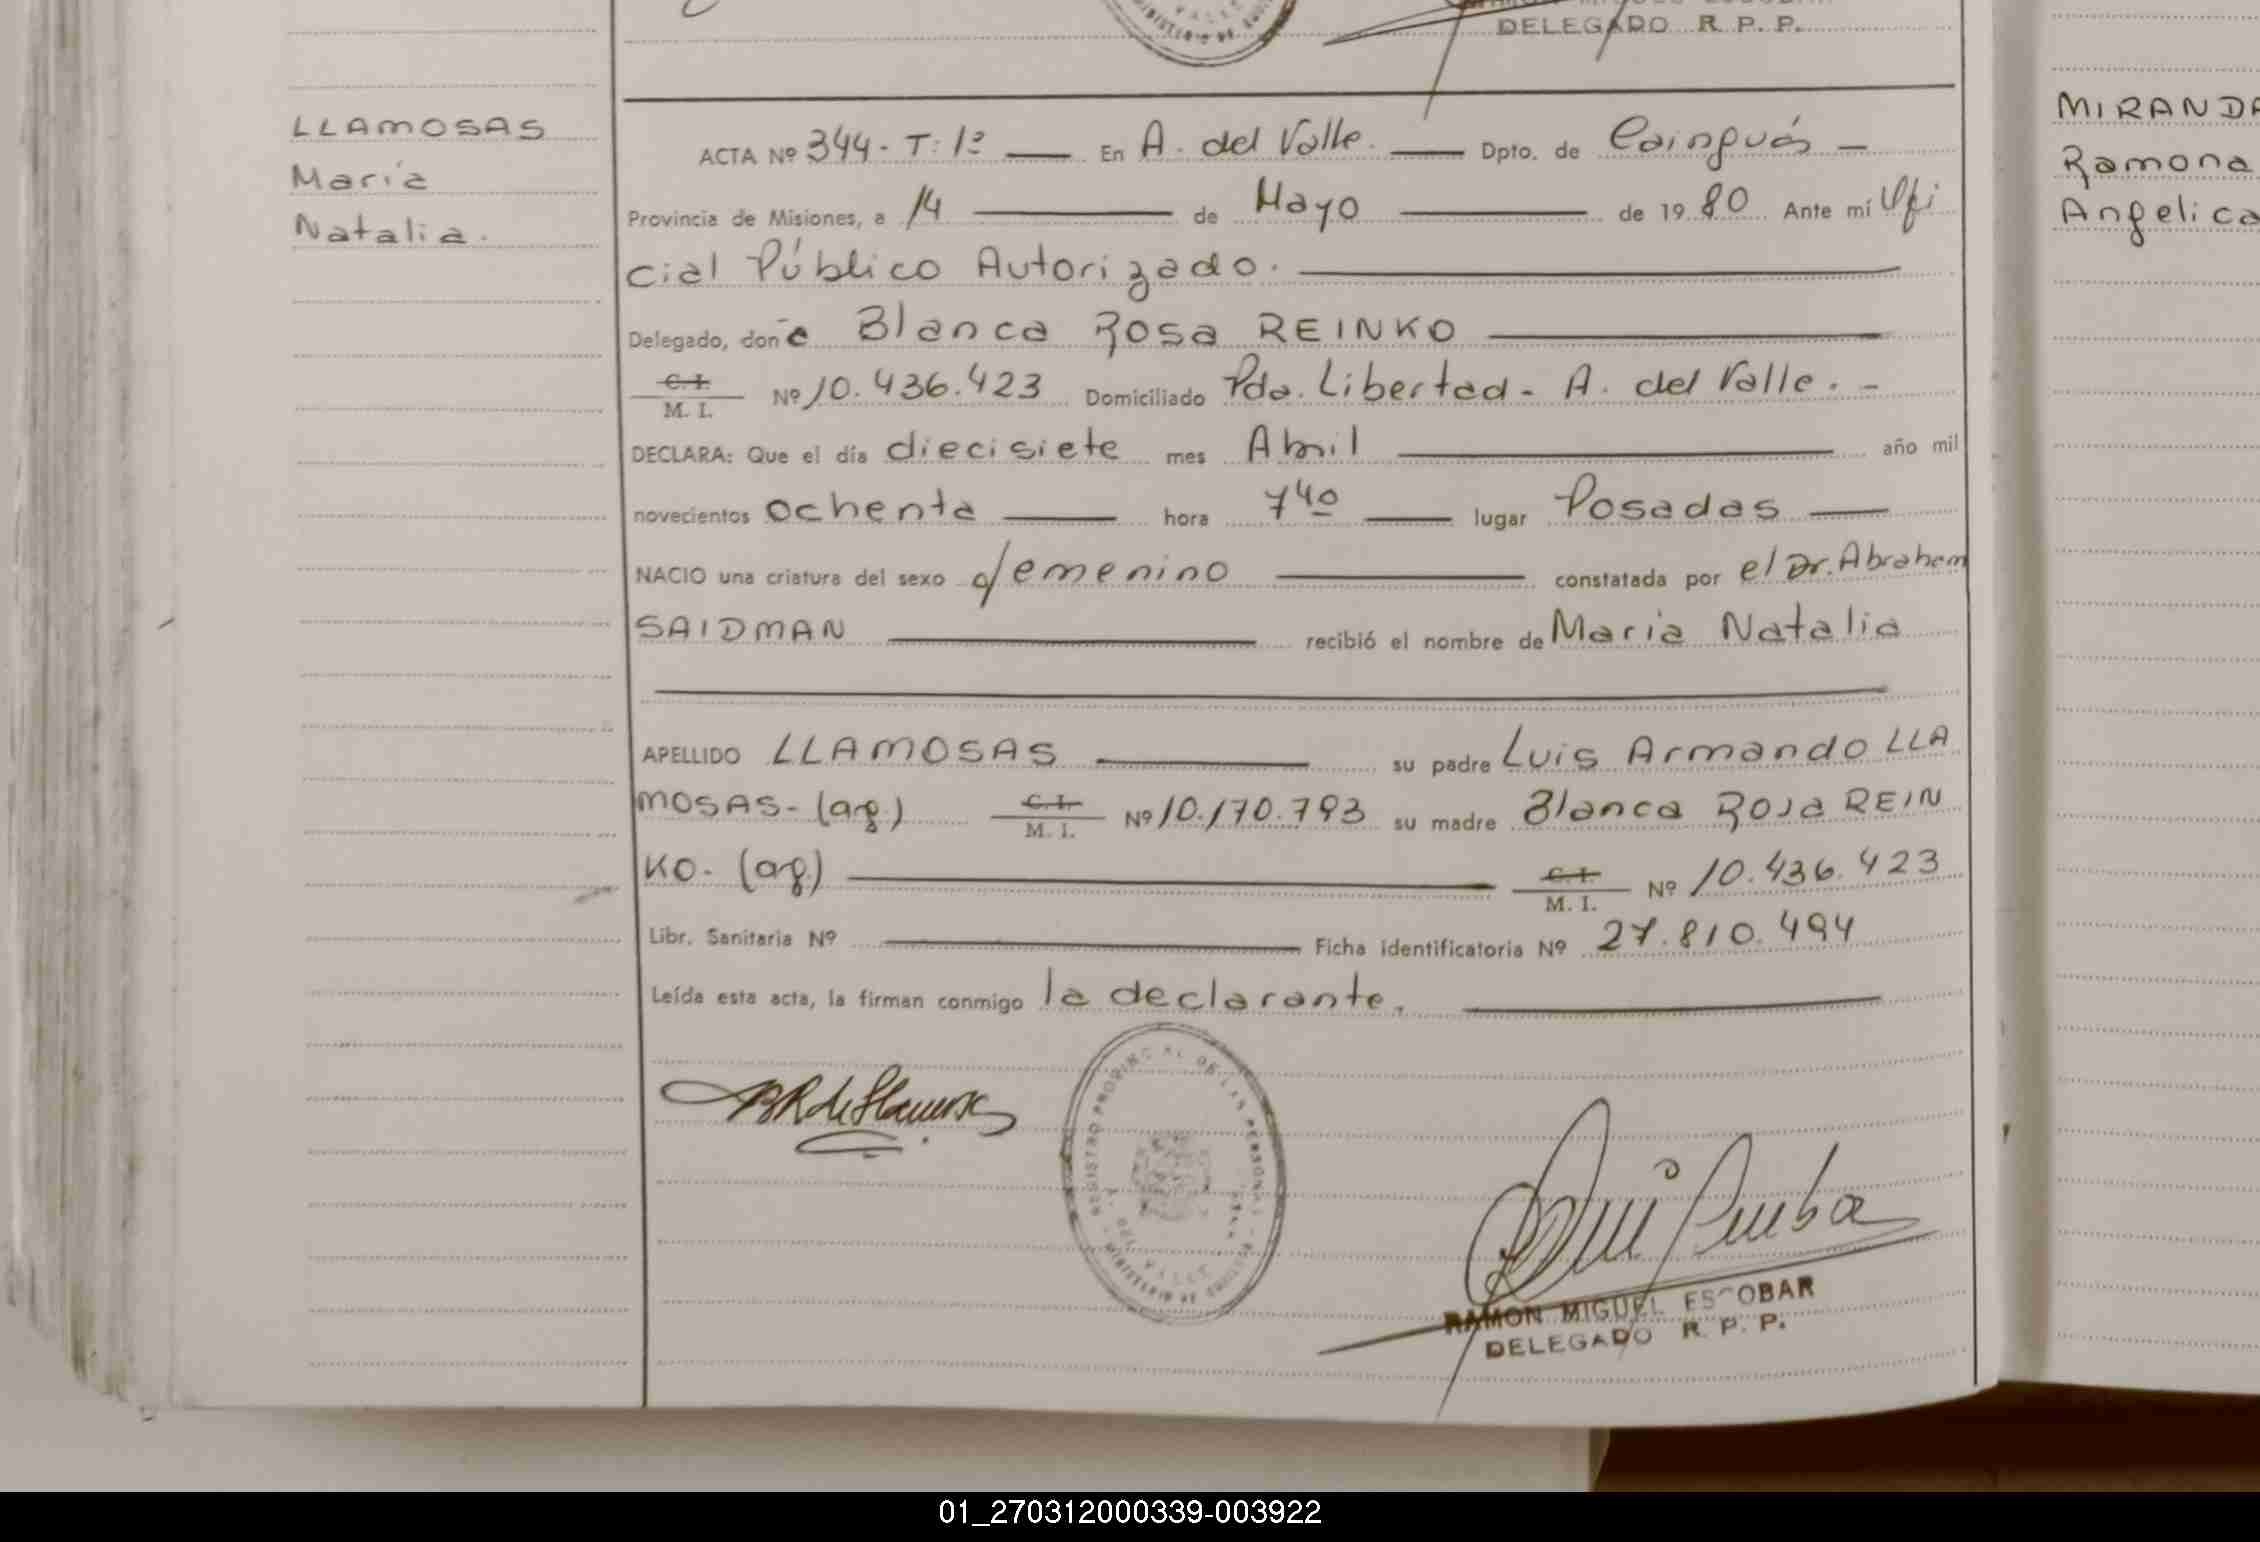 DELEGADO R. P. P.
LLAMOSAS
Maria
Natalia.
ACTA Nº 344 - T: 1º — En A. del Valle. — Dpto. de Cainguás —
Provincia de Misiones, a 14 — de Mayo — de 1980 Ante mí Ofi
cial Público Autorizado. —
Delegado, doña Blanca Rosa REINKO —
C. I.
M. I. Nº 10.436.423 Domiciliado Pda. Libertad - A. del Valle. -
DECLARA: Que el día diecisiete mes Abril — año mil
novecientos ochenta — hora 7 40 — lugar Posadas —
NACIO una criatura del sexo femenino — constatada por el Dr. Abraham
SAIDMAN — recibió el nombre de Maria Natalia
APELLIDO LLAMOSAS — su padre Luis Armando LLA
MOSAS - (arg.) C. I. M. I. Nº 10.170.793 su madre Blanca Rosa REIN
KO. (arg.) — C. I. M. I. Nº 10.436.423
Libr. Sanitaria Nº — Ficha identificatoria Nº 27.810.494
Leída esta acta, la firman conmigo la declarante. —
REGISTRO PROVINCIAL DE LAS PERSONAS
A. DEL VALLE
RAMON MIGUEL ESCOBAR
DELEGADO R. P. P.
MIRANDA
Ramona
Angelica
01_270312000339-003922